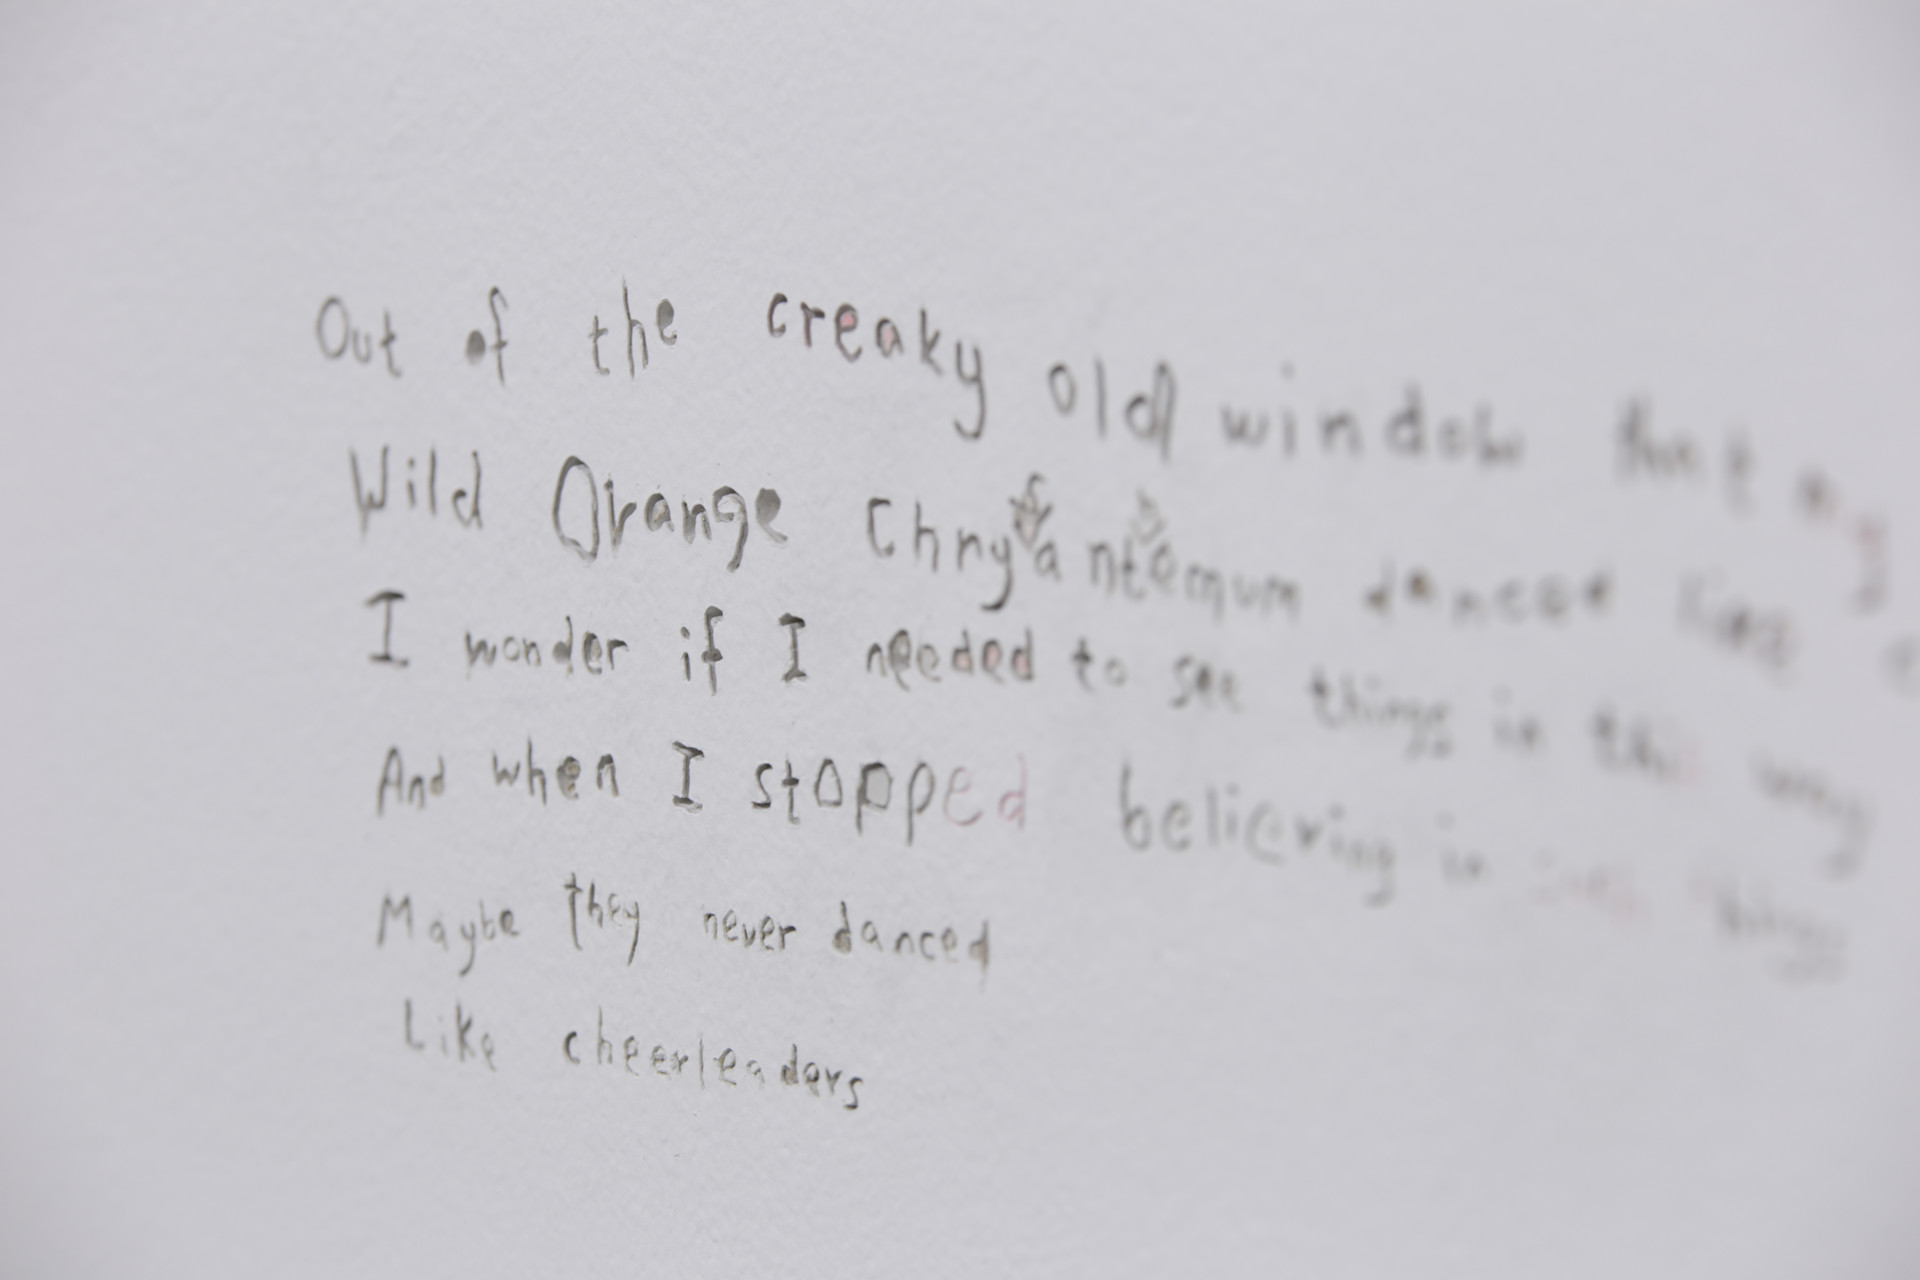 Out of the creaky old window that my
Wild Orange Chrysanthemum danced like
I wonder if I needed to see things in this way
And when I stopped believing in such things
Maybe they never danced
Like cheerleaders